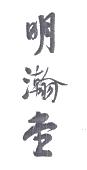 明瀚堂